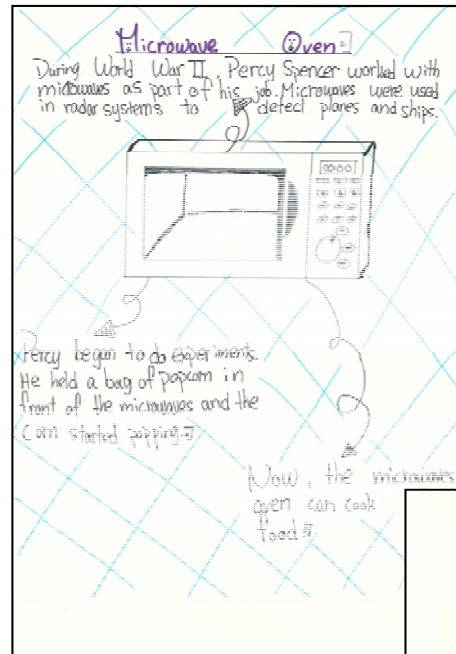 Microwave Oven
During World War II, Percy Spencer worked with
microwaves as part of his job. Microwaves were used
in radar systems to detect planes and ships.
Percy began to do experiments.
He held a bag of popcorn in
front of the microwaves and the
corn started popping.
Now, the microwaves
oven can cook
food.